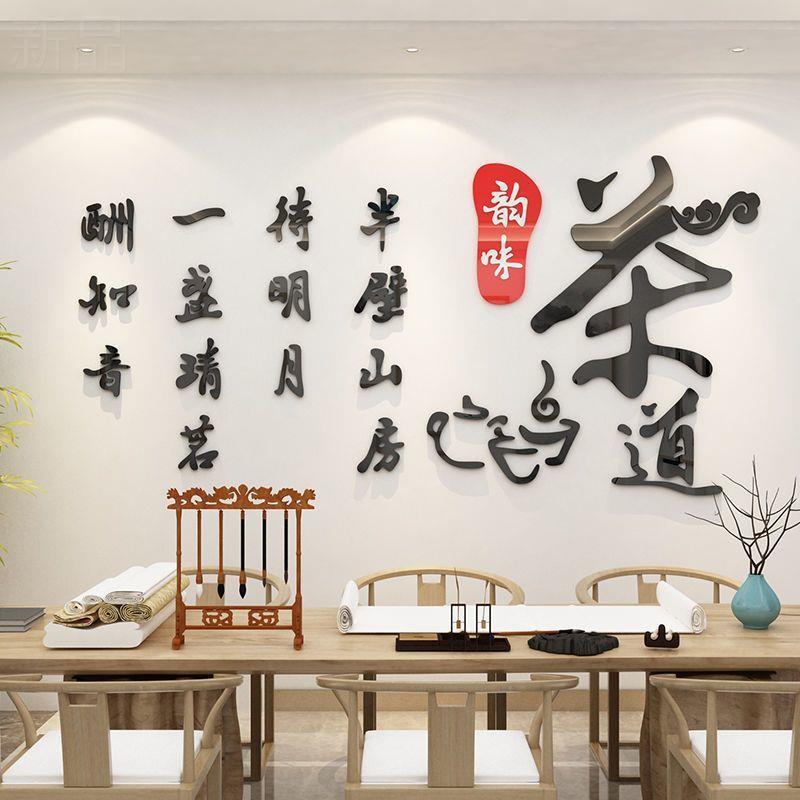 茶道
韵味
半壁山房
待明月
一盏琦茗
酬知音
新品